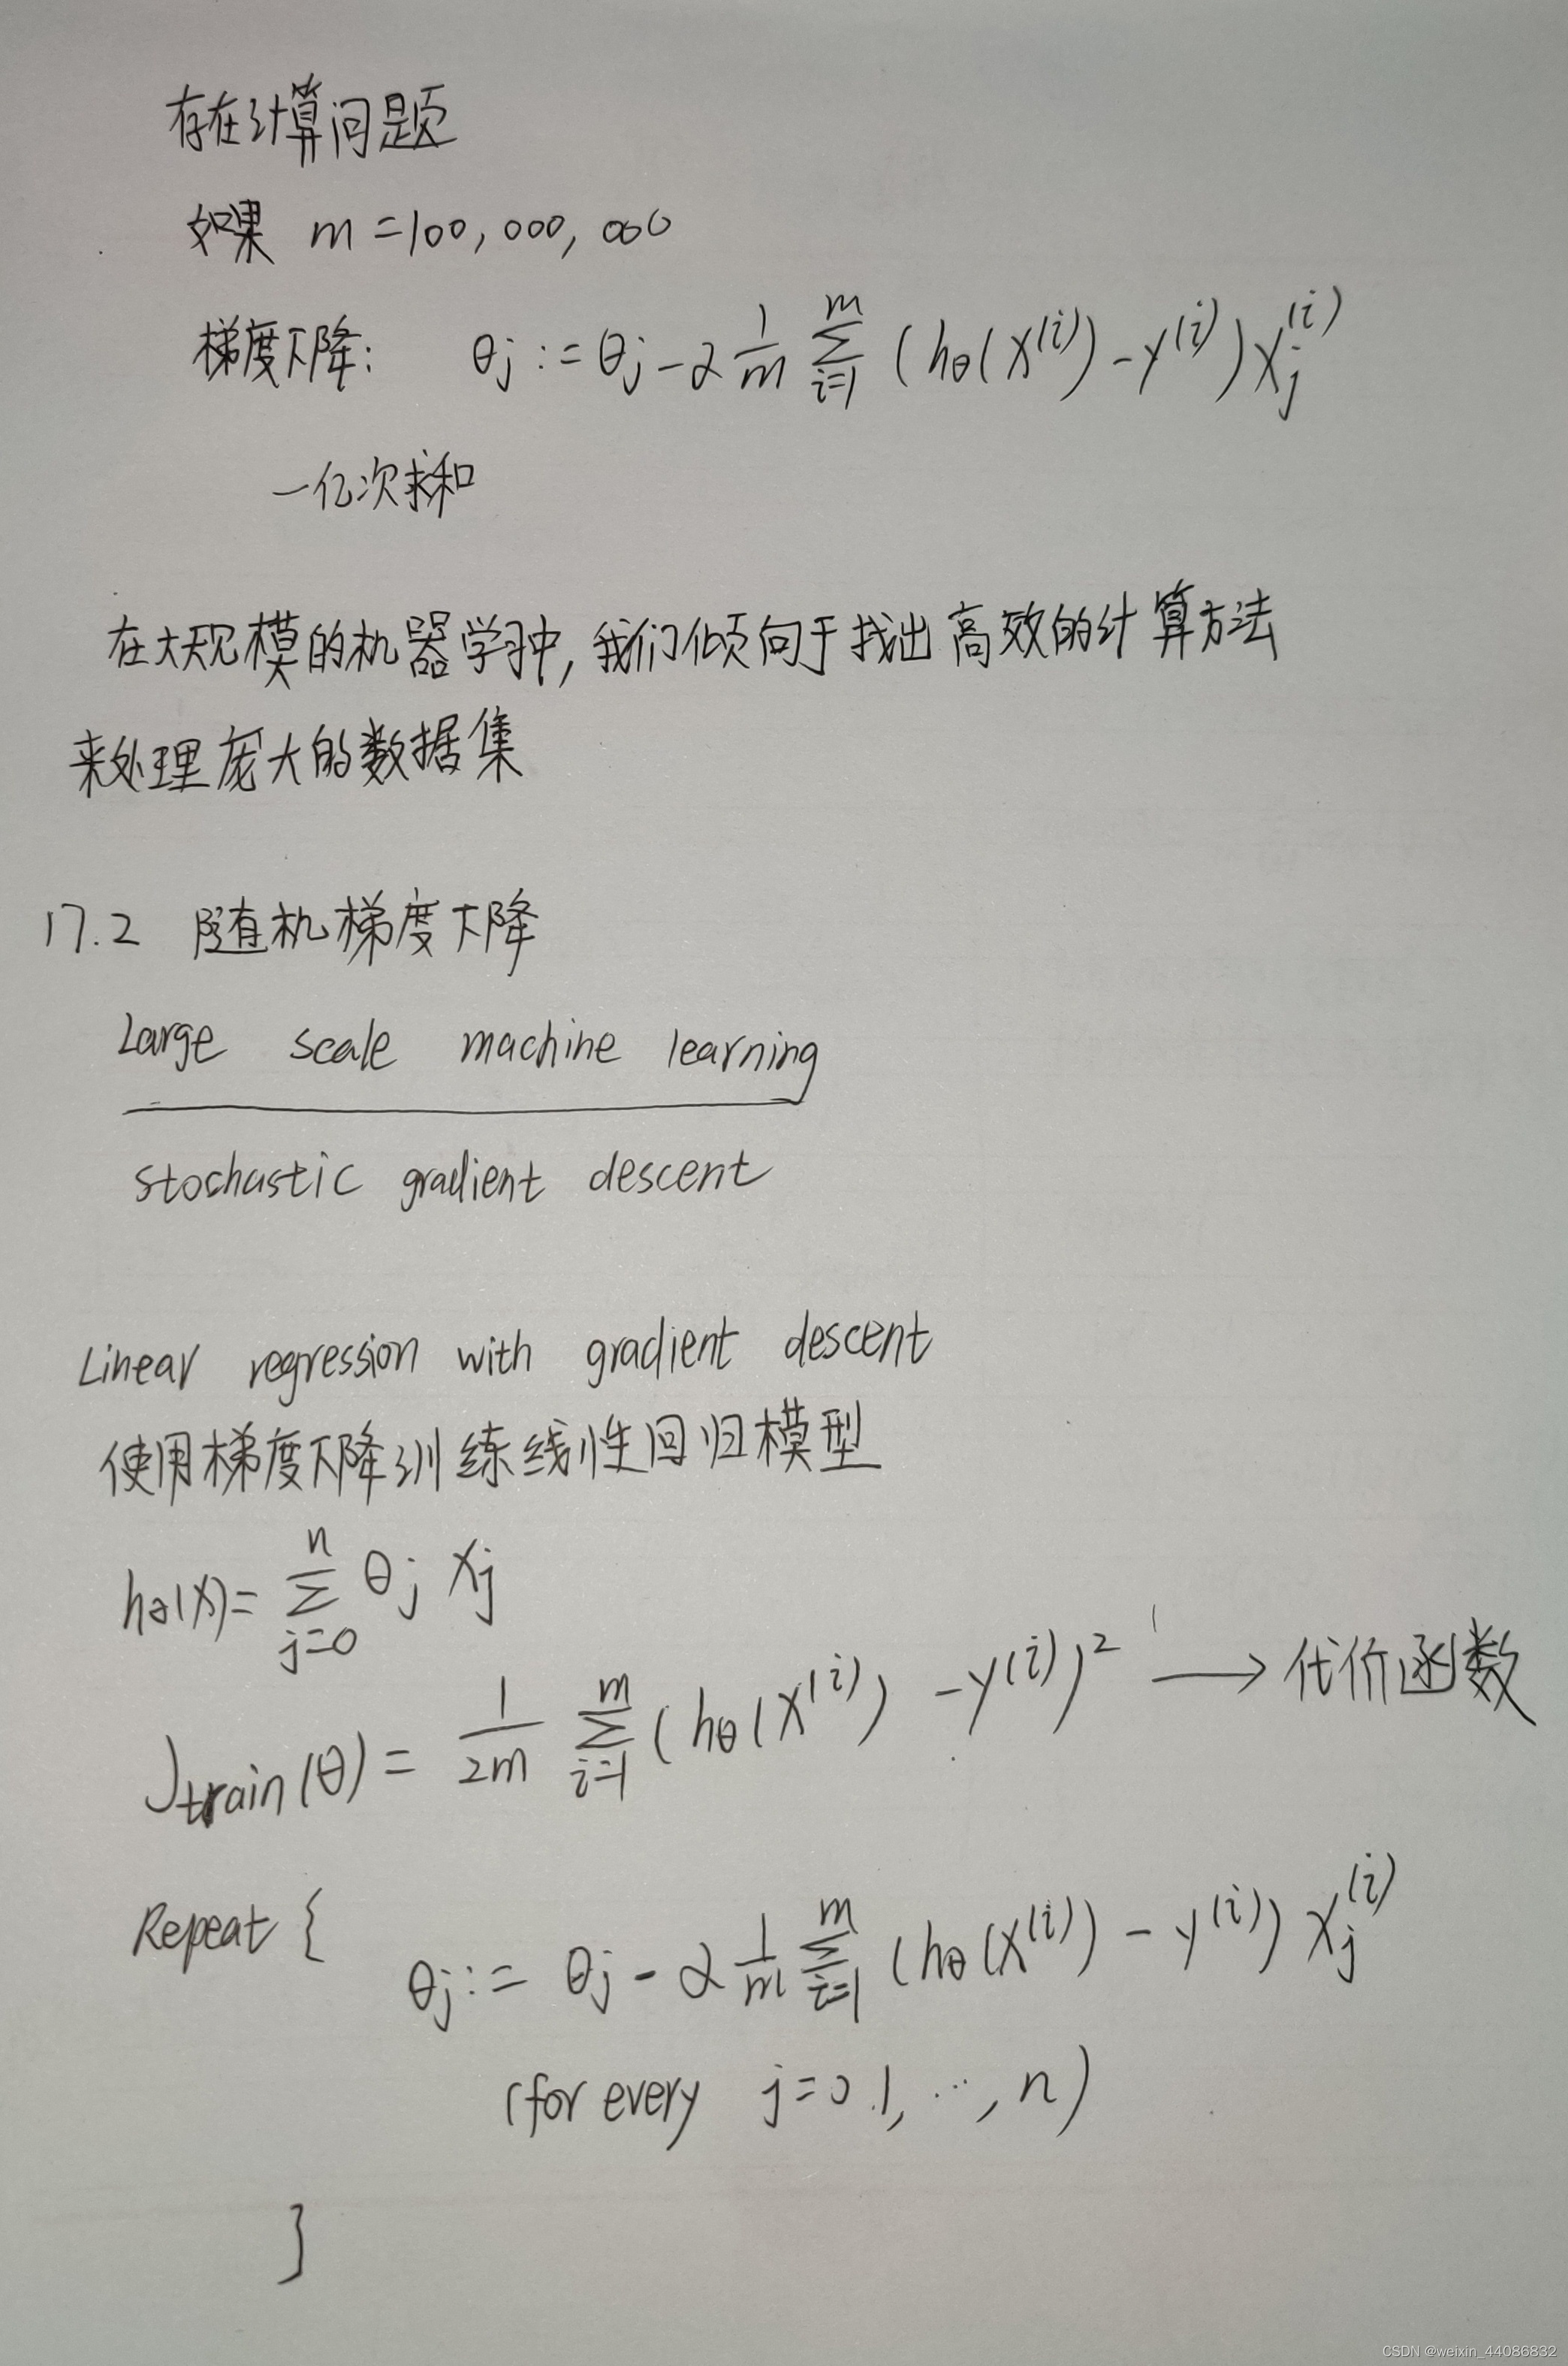 存在计算问题
如果 m = 100,000,000
梯度下降: θj := θj - α 1/m Σ_{i=1}^{m} (hθ(x^(i)) - y^(i)) xj^(i)
一亿次求和
在大规模的机器学习中,我们倾向于找出高效的计算方法
来处理庞大的数据集
17.2 随机梯度下降
Large scale machine learning
stochastic gradient descent
Linear regression with gradient descent
使用梯度下降训练线性回归模型
hθ(x) = Σ_{j=0}^{n} θj xj
Jtrain(θ) = 1/2m Σ_{i=1}^{m} (hθ(x^(i)) - y^(i))² → 代价函数
Repeat {
θj := θj - α 1/m Σ_{i=1}^{m} (hθ(x^(i)) - y^(i)) xj^(i)
(for every j=0.1, ..., n)
}
CSDN @weixin_44086832